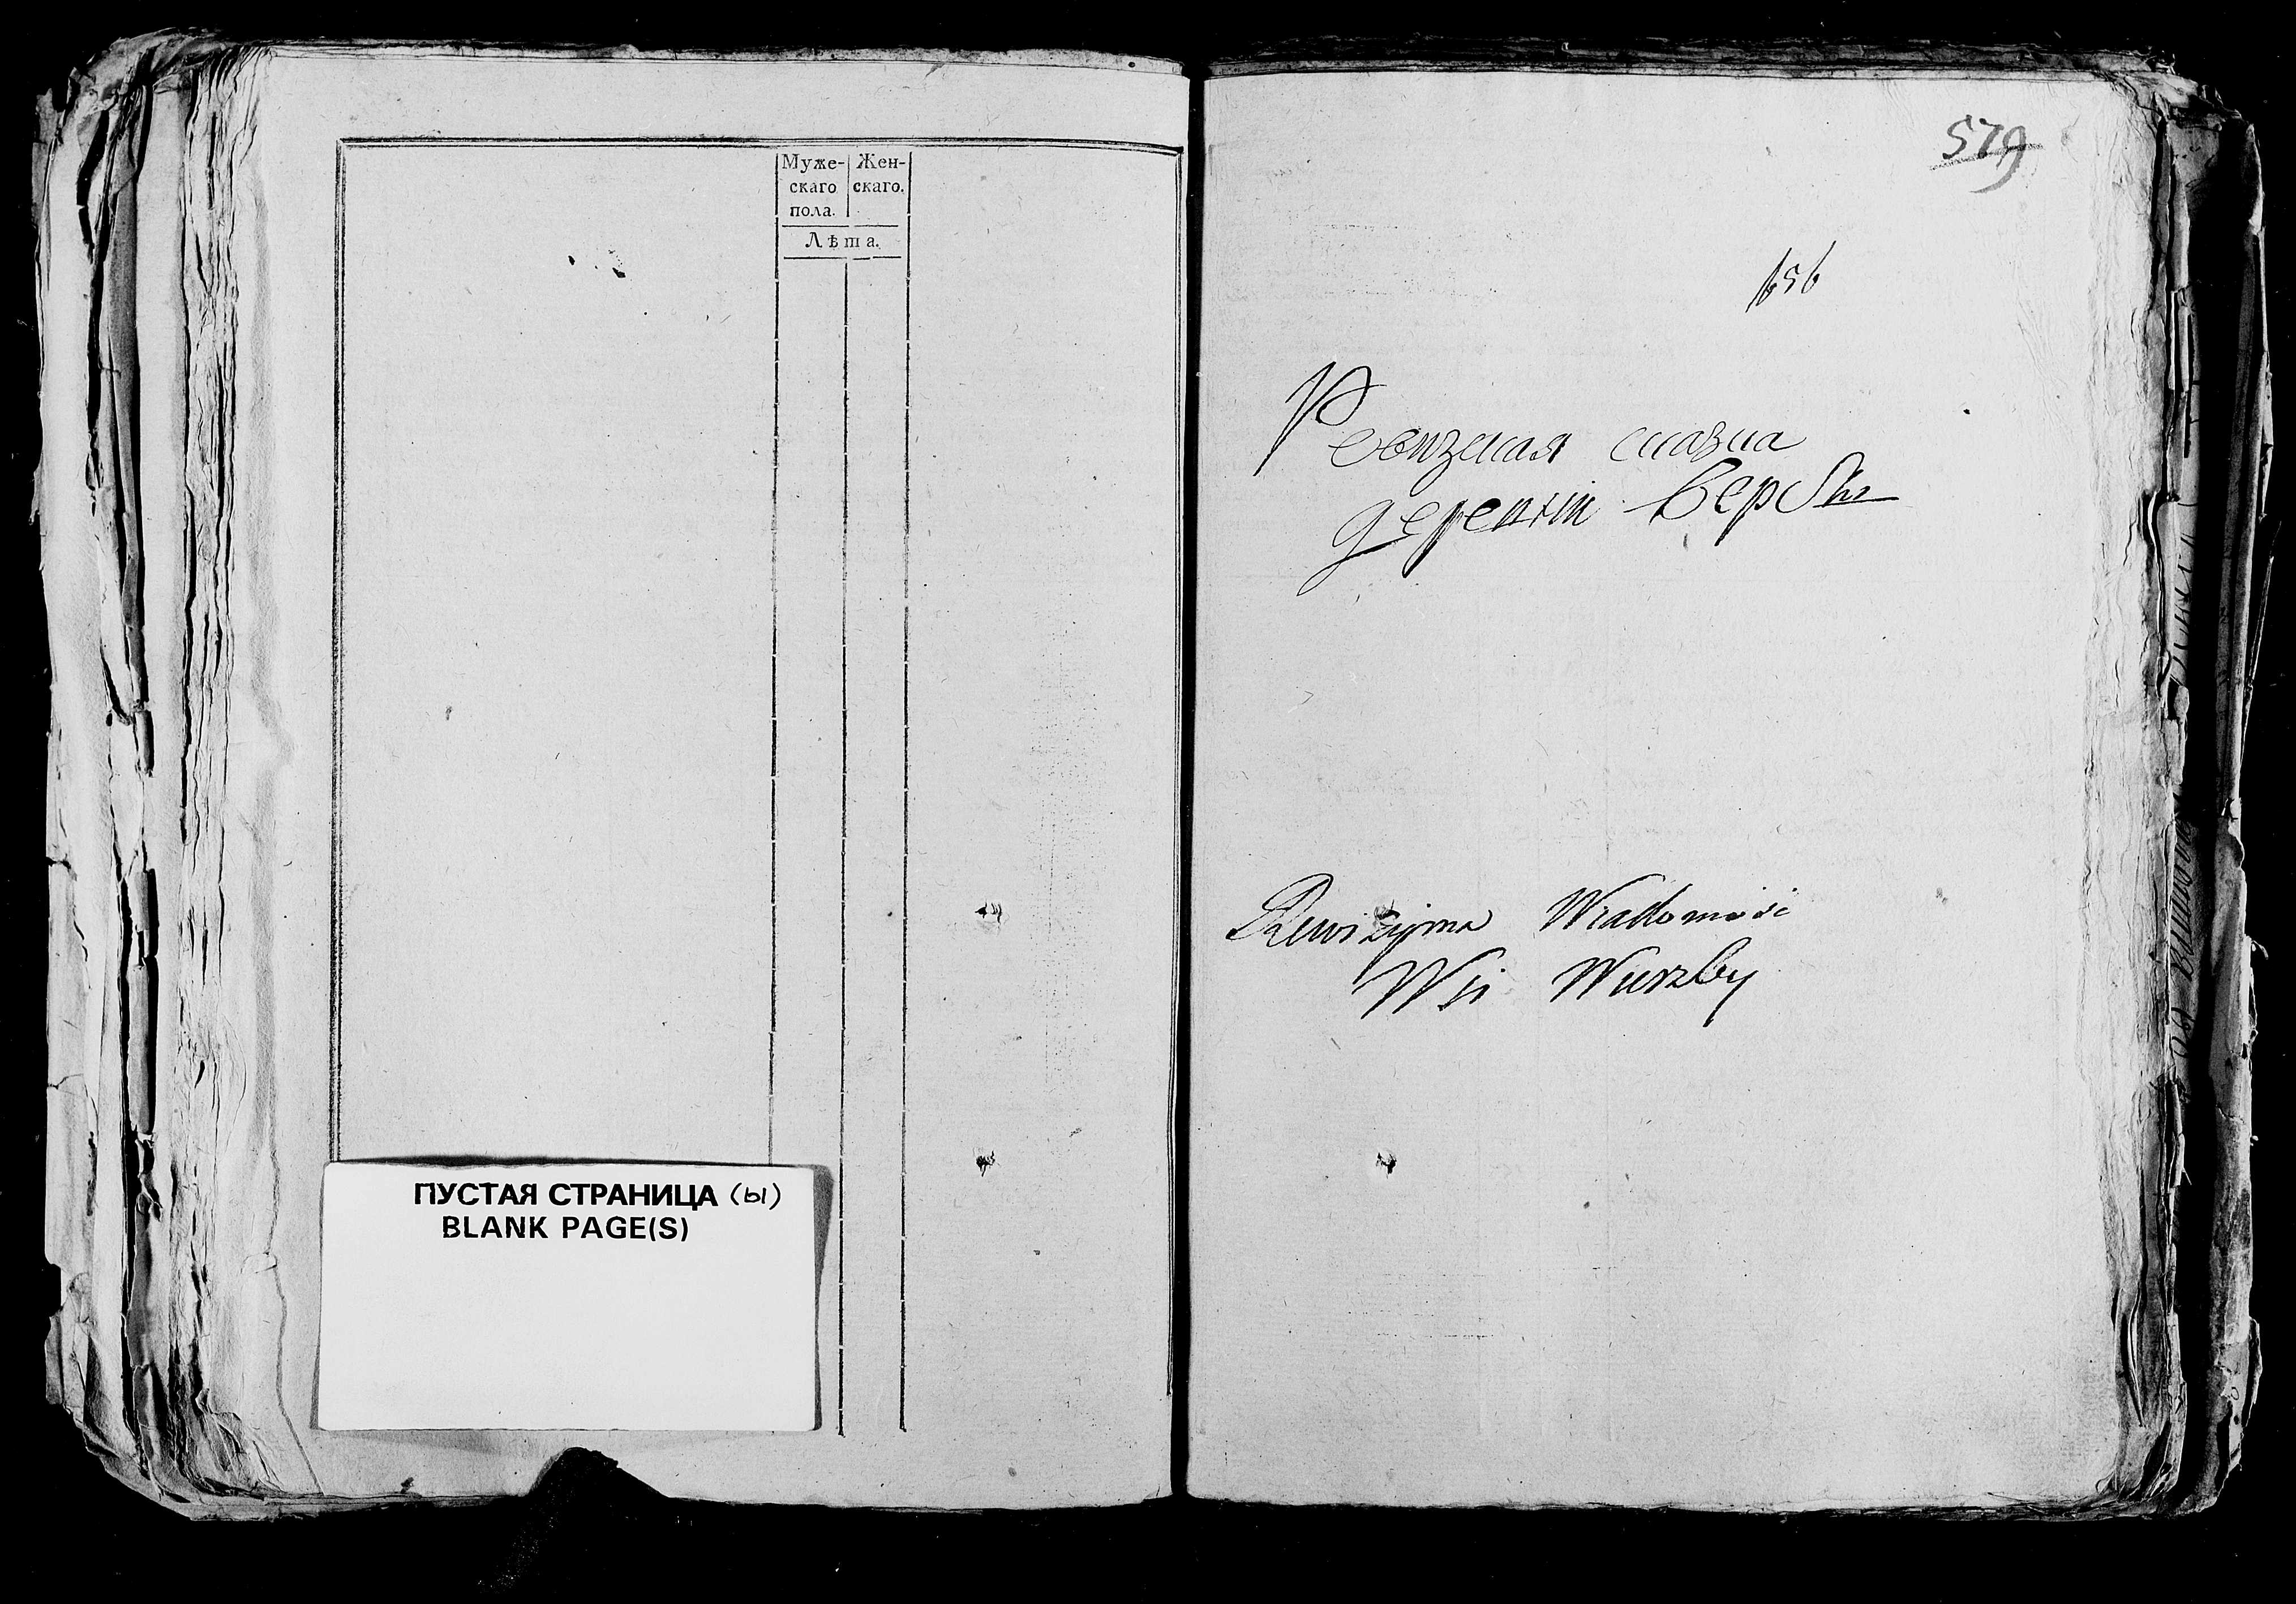 Муже- Жен-
скаго скаго.
пола.
Лѣта.
ПУСТАЯ СТРАНИЦА (ы)
BLANK PAGE(S)
579
656
Ревизская сказка
деревни Вербы
Rewizyina Wiadomość
Wsi Wierzby